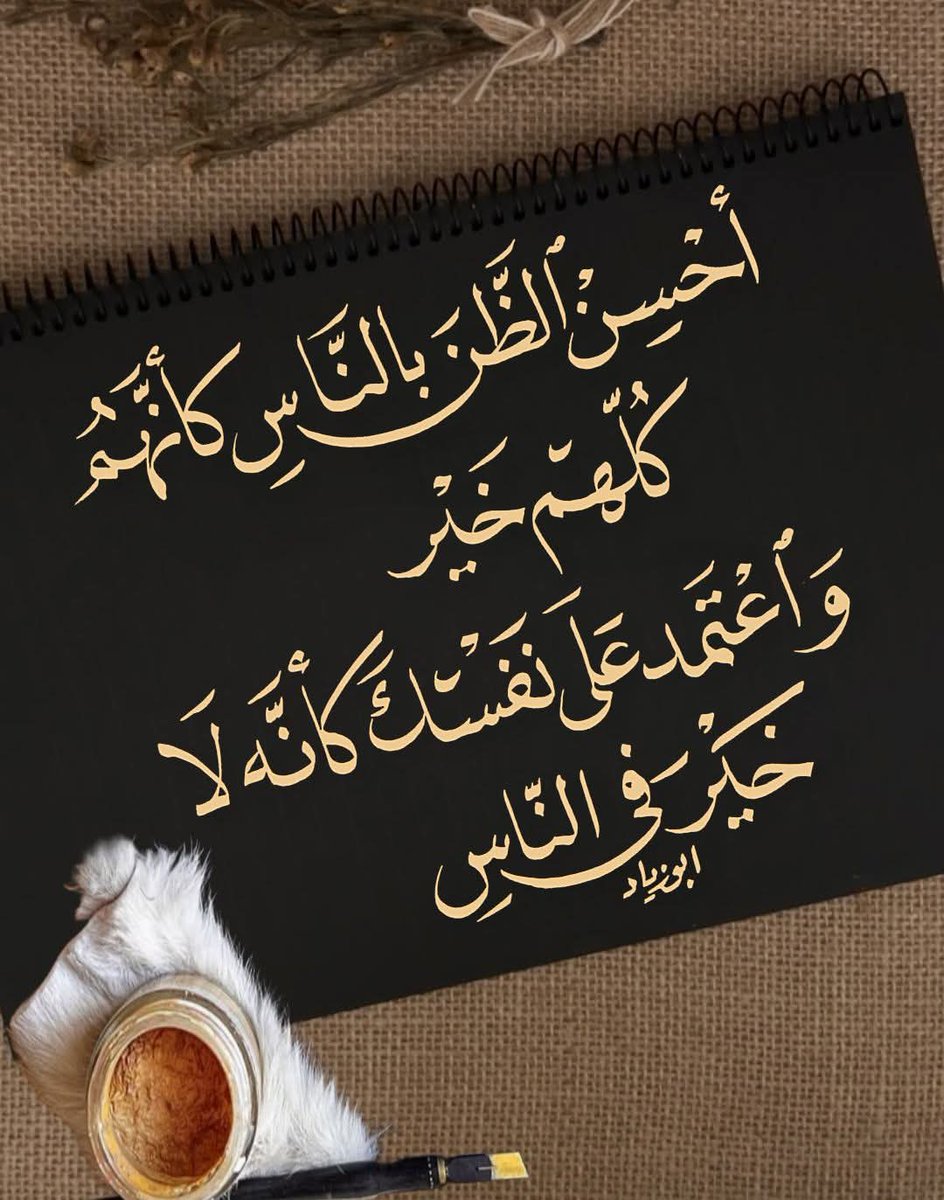 أَحْسِنْ ٱلظَّنَ بالنَّاسِ كأنَّهُمُ
كُلّهمّ خَيْر
وَٱعْتَمَد عَلَى نَفَسْكَ كأنَّه لَا
خَيْرَ في النَّاسِ
ابوزياد